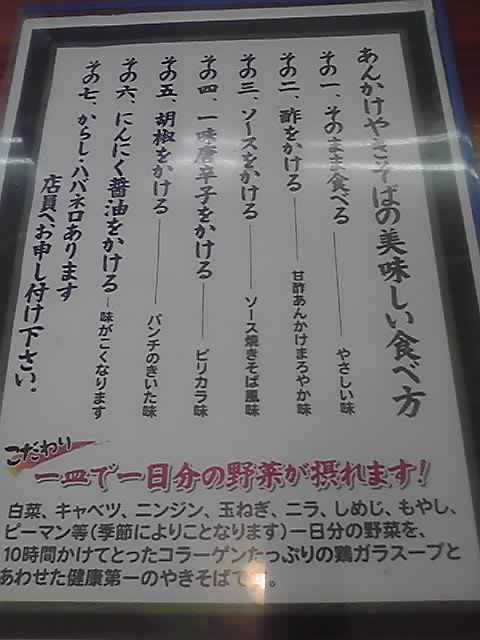 あんかけやきそばの美味しい食べ方
その一、そのまま食べる――やさしい味
その二、酢をかける――甘酢あんかけまろやか味
その三、ソースをかける――ソース焼きそば風味
その四、一味唐辛子をかける――ピリカラ味
その五、胡椒をかける――パンチのきいた味
その六、にんにく醤油をかける―味がこくなります
その七、からし・ハバネロあります
店員へお申し付け下さい。
こだわり
一皿で一日分の野菜が摂れます!
白菜、キャベツ、ニンジン、玉ねぎ、ニラ、しめじ、もやし、
ピーマン等(季節によりことなります)一日分の野菜を、
10時間かけてとったコラーゲンたっぷりの鶏ガラスープと
あわせた健康第一のやきそばです。